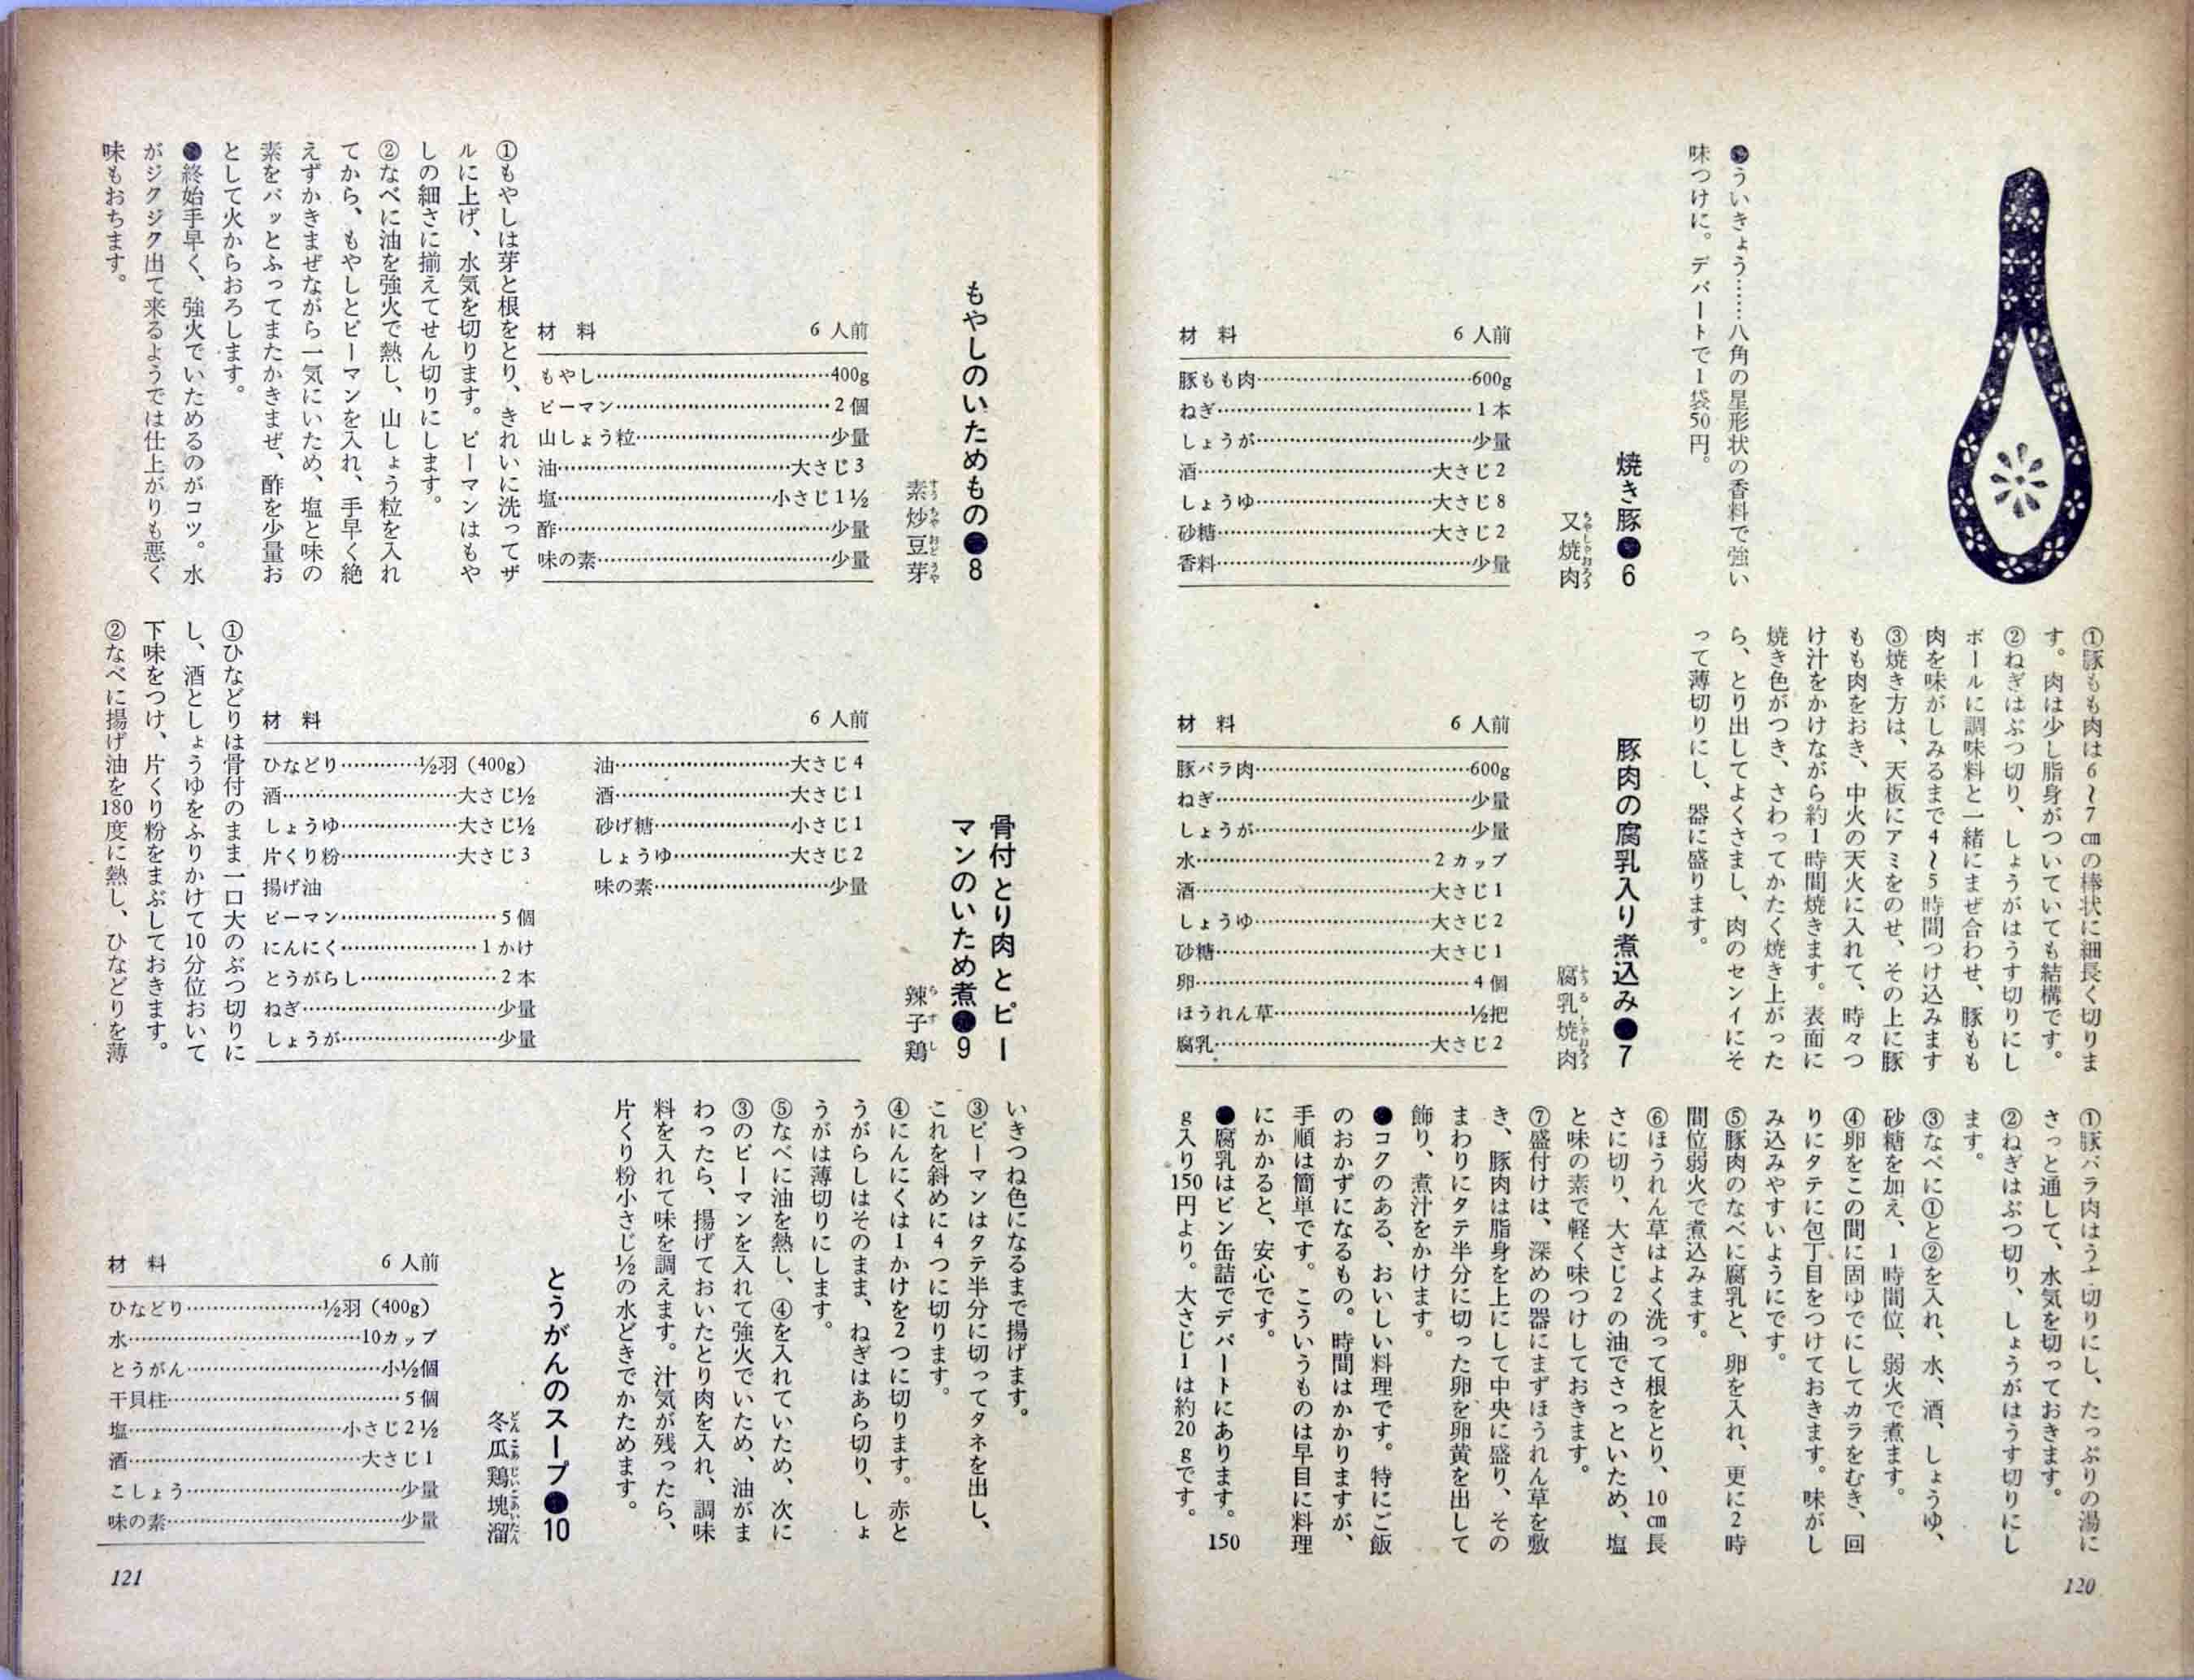 ●ういきょう……八角の星形状の香料で強い
味つけに。デパートで1袋50円。
焼き豚●6
叉焼肉
材料 6人前
豚もも肉……600g
ねぎ……1本
しょうが……少量
酒……大さじ2
しょうゆ……大さじ8
砂糖……大さじ2
香料……少量
①豚もも肉は6〜7cmの棒状に細長く切りま
す。肉は少し脂身がついていても結構です。
②ねぎはぶつ切り、しょうがはうす切りにし
ボールに調味料と一緒にまぜ合わせ、豚もも
肉を味がしみるまで4〜5時間つけ込みます
③焼き方は、天板にアミをのせ、その上に豚
もも肉をおき、中火の天火に入れて、時々つ
け汁をかけながら約1時間焼きます。表面に
焼き色がつき、さわってかたく焼き上がった
ら、とり出してよくさまし、肉のセンイにそ
って薄切りにし、器に盛ります。
豚肉の腐乳入り煮込み●7
腐乳焼肉
材料 6人前
豚バラ肉……600g
ねぎ……少量
しょうが……少量
水……2カップ
酒……大さじ1
しょうゆ……大さじ2
砂糖……大さじ1
卵……4個
ほうれん草……½把
腐乳……大さじ2
①豚バラ肉はうす切りにし、たっぷりの湯に
さっと通して、水気を切っておきます。
②ねぎはぶつ切り、しょうがはうす切りにし
ます。
③なべに①と②を入れ、水、酒、しょうゆ、
砂糖を加え、1時間位、弱火で煮ます。
④卵をこの間に固ゆでにしてカラをむき、回
りにタテに包丁目をつけておきます。味がし
み込みやすいようにです。
⑤豚肉のなべに腐乳と、卵を入れ、更に2時
間位弱火で煮込みます。
⑥ほうれん草はよく洗って根をとり、10cm長
さに切り、大さじ2の油でさっといため、塩
と味の素で軽く味つけしておきます。
⑦盛付けは、深めの器にまずほうれん草を敷
き、豚肉は脂身を上にして中央に盛り、その
まわりにタテ半分に切った卵を卵黄を出して
飾り、煮汁をかけます。
●コクのある、おいしい料理です。特にご飯
のおかずになるもの。時間はかかりますが、
手順は簡単です。こういうものは早目に料理
にかかると、安心です。
●腐乳はビン缶詰でデパートにあります。150
g入り150円より。大さじ1は約20gです。
120
もやしのいためもの●8
素炒豆芽
材料 6人前
もやし……400g
ピーマン……2個
山しょう粒……少量
油……大さじ3
塩……小さじ1½
酢……少量
味の素……少量
①もやしは芽と根をとり、きれいに洗ってザ
ルに上げ、水気を切ります。ピーマンはもや
しの細さに揃えてせん切りにします。
②なべに油を強火で熱し、山しょう粒を入れ
てから、もやしとピーマンを入れ、手早く絶
えずかきまぜながら一気にいため、塩と味の
素をパッとふってまたかきまぜ、酢を少量お
として火からおろします。
●終始手早く、強火でいためるのがコツ。水
がジクジク出て来るようでは仕上がりも悪く
味もおちます。
骨付とり肉とピー
マンのいため煮●9
辣子鶏
材料 6人前
ひなどり……½羽(400g)
酒……大さじ½
しょうゆ……大さじ½
片くり粉……大さじ3
揚げ油
ピーマン……5個
にんにく……1かけ
とうがらし……2本
ねぎ……少量
しょうが……少量
油……大さじ4
酒……大さじ1
砂げ糖……小さじ1
しょうゆ……大さじ2
味の素……少量
①ひなどりは骨付のまま一口大のぶつ切りに
し、酒としょうゆをふりかけて10分位おいて
下味をつけ、片くり粉をまぶしておきます。
②なべに揚げ油を180度に熱し、ひなどりを薄
いきつね色になるまで揚げます。
③ピーマンはタテ半分に切ってタネを出し、
これを斜めに4つに切ります。
④にんにくは1かけを2つに切ります。赤と
うがらしはそのまま、ねぎはあら切り、しょ
うがは薄切りにします。
⑤なべに油を熱し、④を入れていため、次に
③のピーマンを入れて強火でいため、油がま
わったら、揚げておいたとり肉を入れ、調味
料を入れて味を調えます。汁気が残ったら、
片くり粉小さじ½の水どきでかためます。
とうがんのスープ●10
冬瓜鶏塊溜
材料 6人前
ひなどり……½羽(400g)
水……10カップ
とうがん……小½個
干貝柱……5個
塩……小さじ2½
酒……大さじ1
こしょう……少量
味の素……少量
121